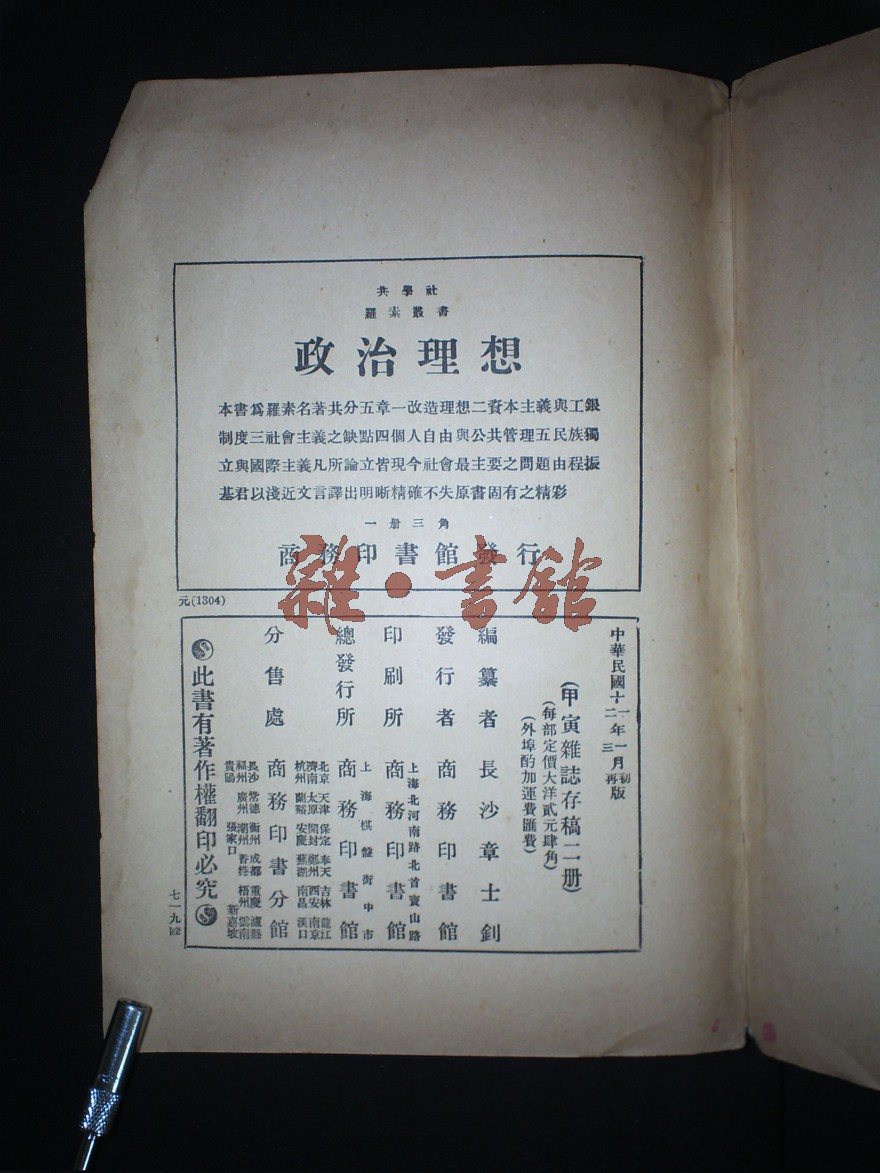 共學社
羅素叢書
政治理想
本書爲羅素名著共分五章一改造理想二資本主義與工銀
制度三社會主義之缺點四個人自由與公共管理五民族獨
立與國際主義凡所論立皆現今社會最主要之問題由程振
基君以淺近文言譯出明晰精確不失原書固有之精彩
一册三角
商務印書館發行
雜·書館
元(1304)
中華民國十一年一月初版
二三再
(甲寅雜誌存稿二册)
(每部定價大洋貳元肆角)
(外埠酌加運費匯費)
編纂者 長沙章士釗
發行者 商務印書館
上海北河南路北首寶山路
印刷所 商務印書館
上海棋盤街中市
總發行所 商務印書館
北京 天津 保定 奉天 吉林 龍江
濟南 太原 開封 鄭州 西安 南京
杭州 蘭谿 安慶 蕪湖 南昌 漢口
分售處 商務印書分館
長沙 常德 衡州 成都 重慶 瀘縣
福州 廣州 潮州 香港 梧州 雲南
貴陽 張家口 新嘉坡
此書有著作權翻印必究
七一九